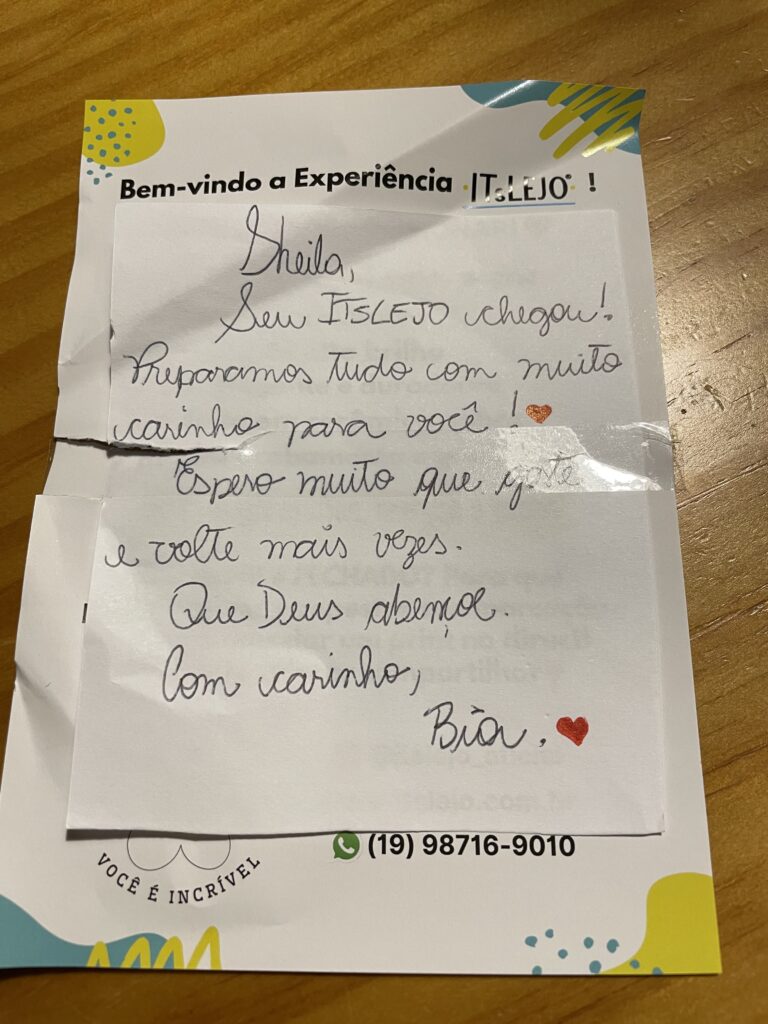 Bem-vindo a Experiência ITsLEJO !
Sheila,
Seu ITSLEJO chegou!
Preparamos tudo com muito
carinho para você !
Espero muito que goste
e volte mais vezes.
Que Deus abençoe.
Com carinho,
Bia.
(19) 98716-9010
VOCÊ É INCRÍVEL